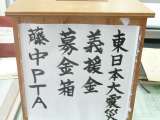 東日本大震災
義援金
募金箱
藤中PTA